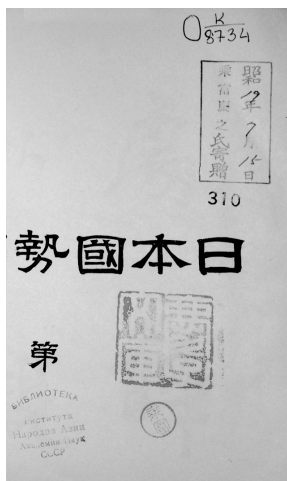 K
8734
昭和19年7月15日
之氏寄贈
310
日本國勢
第
БИБЛИОТЕКА
Института
Народов Азии
Академии Наук
СССР